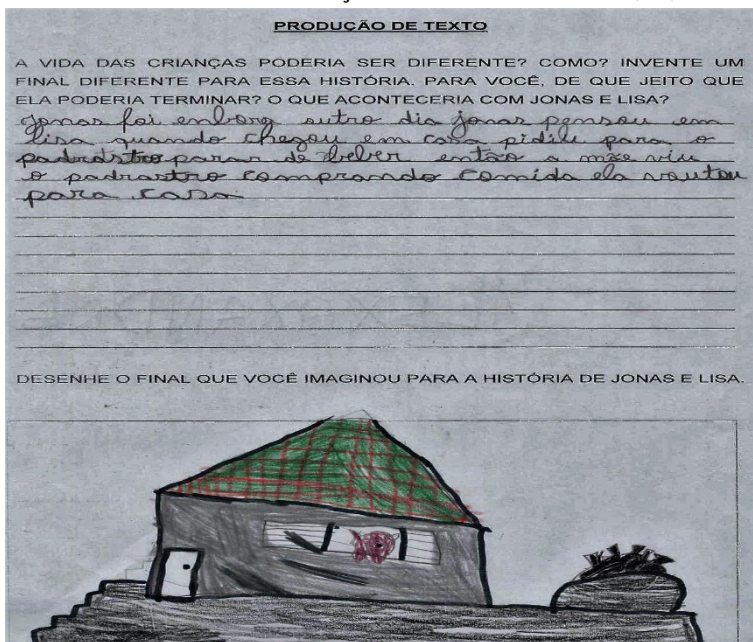 PRODUÇÃO DE TEXTO
A VIDA DAS CRIANÇAS PODERIA SER DIFERENTE? COMO? INVENTE UM
FINAL DIFERENTE PARA ESSA HISTÓRIA. PARA VOCÊ, DE QUE JEITO QUE
ELA PODERIA TERMINAR? O QUE ACONTECERIA COM JONAS E LISA?
Jonas foi enbora outro dia jonas pensou em
lisa quando chegou em casa pidiu para o
padrastro parar de beber então a mãe viu
o padrastro comprando comida ela voutou
para casa.
DESENHE O FINAL QUE VOCÊ IMAGINOU PARA A HISTÓRIA DE JONAS E LISA.